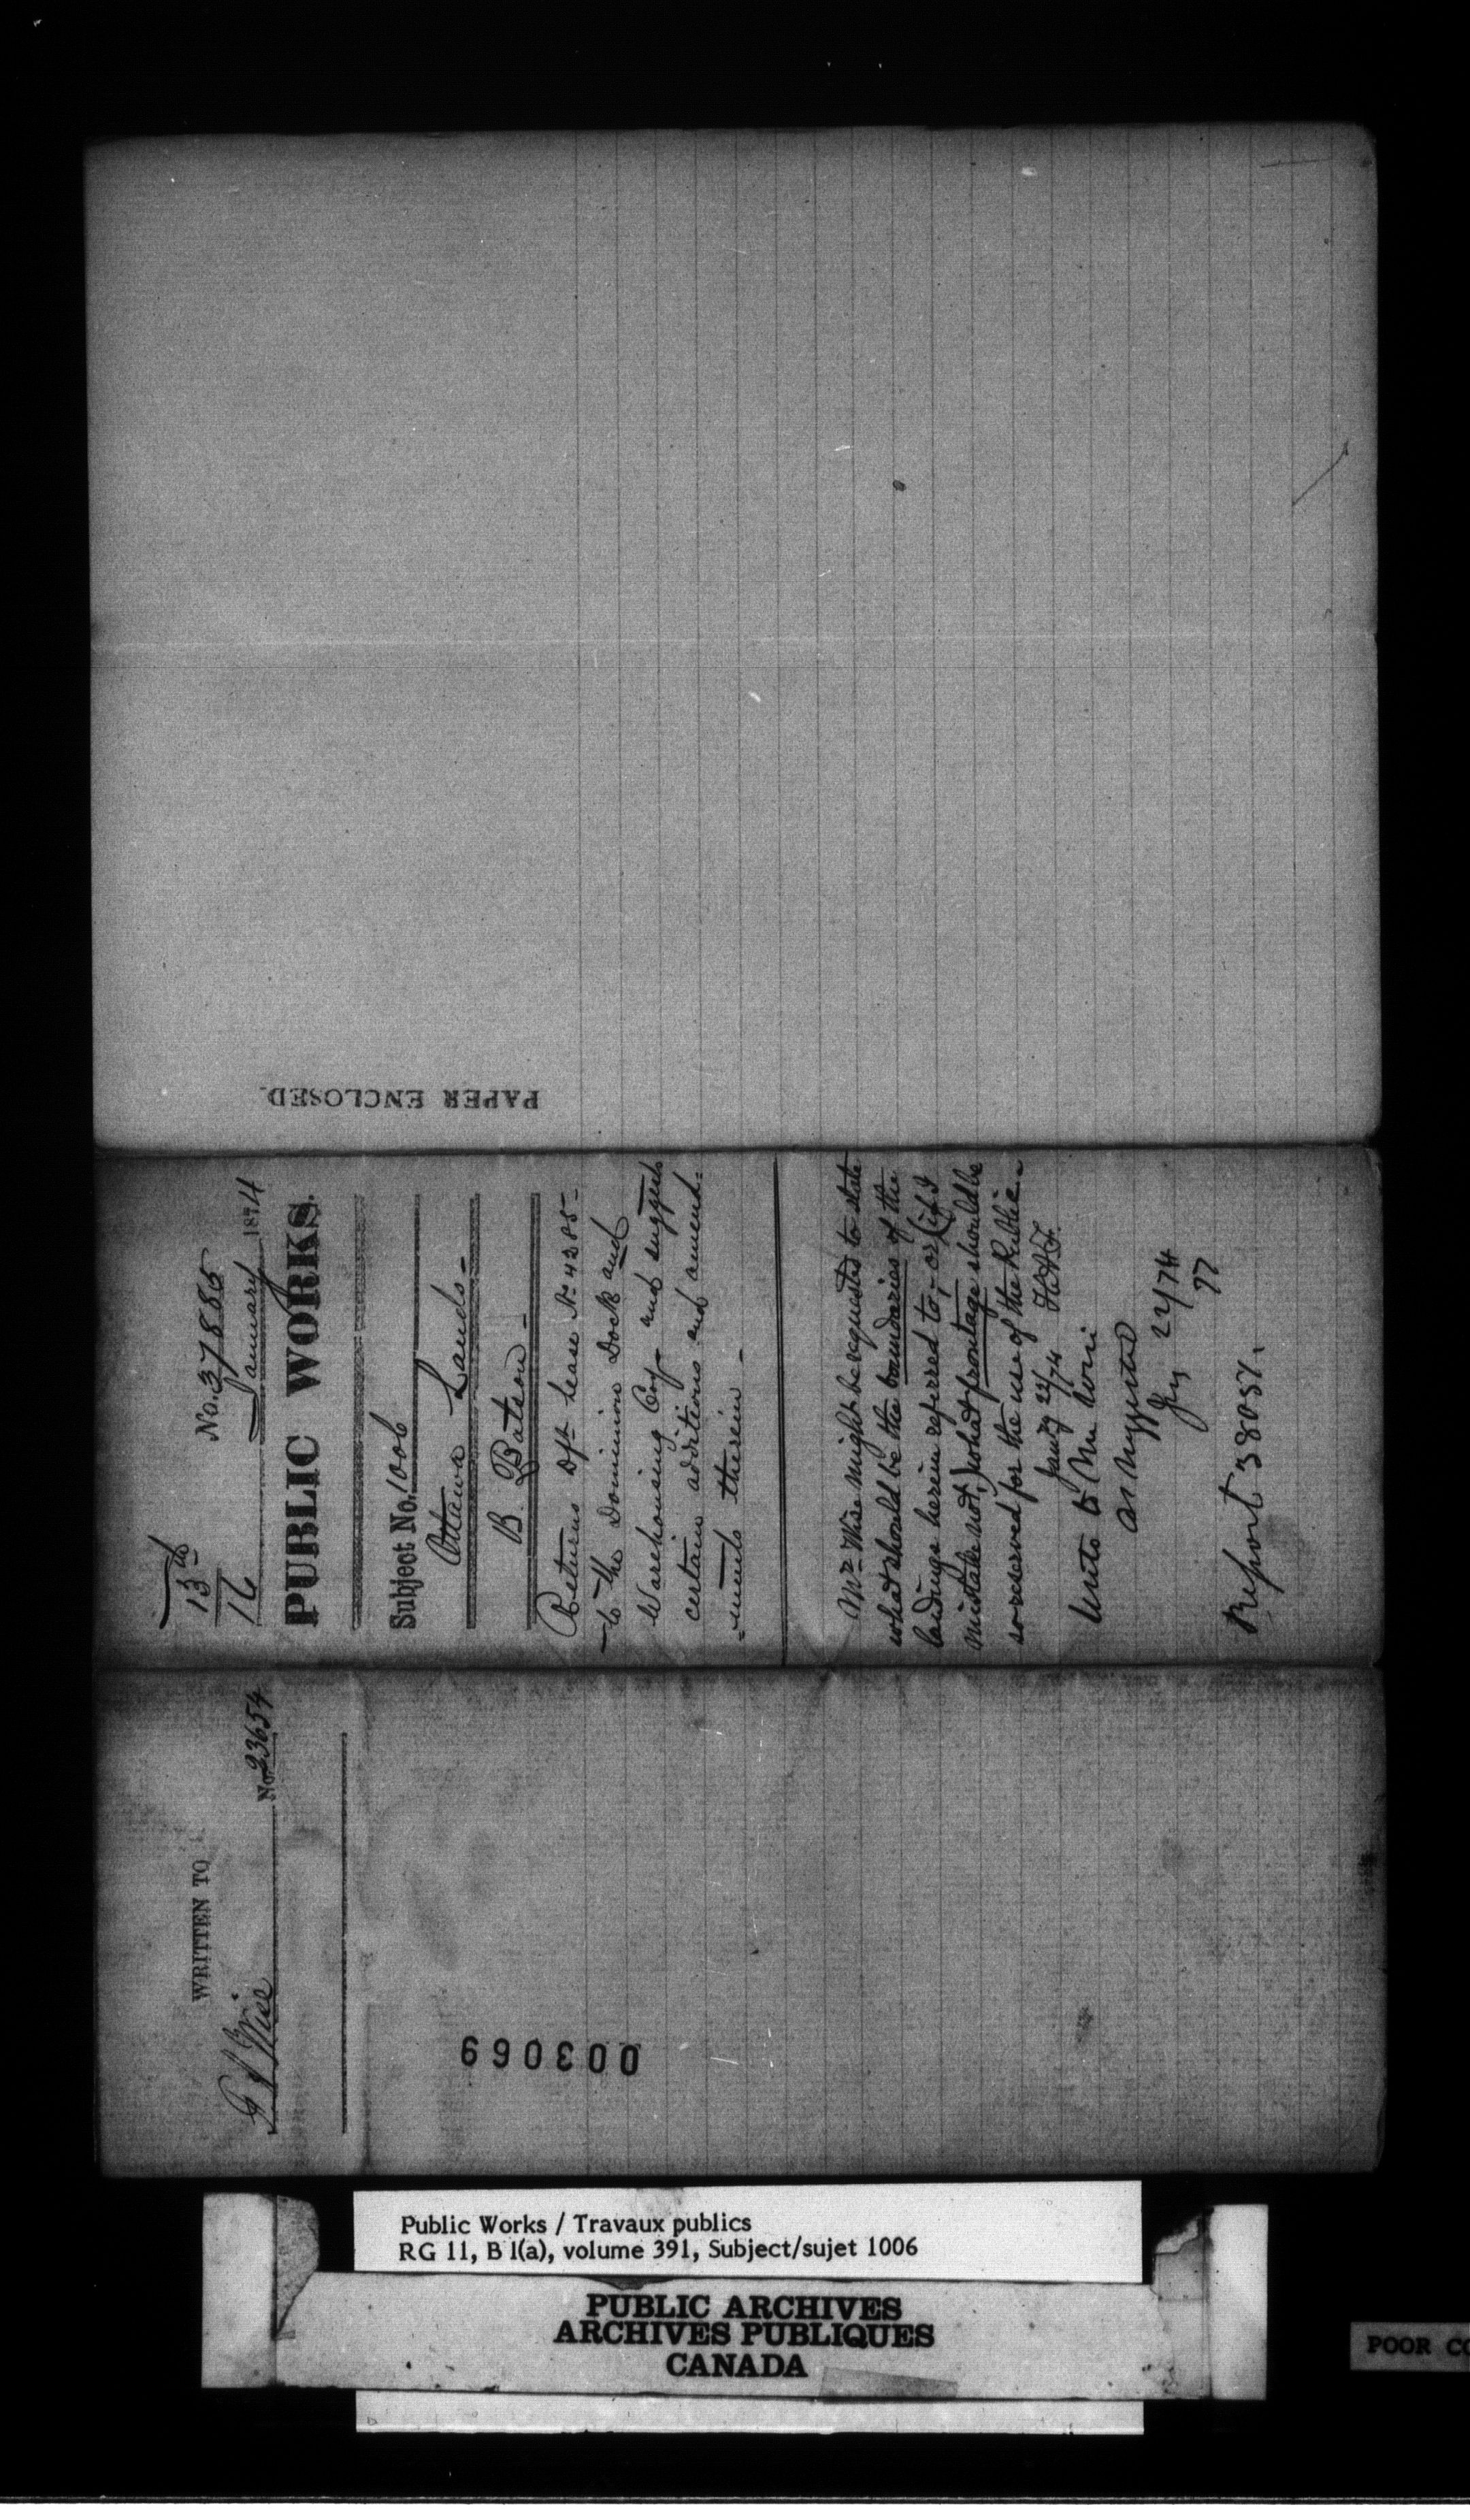 PAPER ENCLOSED.
13th
16
No. 37885
January 1874
PUBLIC WORKS.
Subject No. 1006
Ottawa Lands -
B. Batson -
Returns Dft. lease No. 4285 -
- to the Dominion Dock and
Warehousing Coy - and suggests
certain additions and amend-
=ments therein -
Mr. Wise might be requested to state
what should be the boundaries of the
landings herein referred to, - or (if I
mistake not,) what frontage should be
so reserved for the use of the Public -
Jany 22/74
Write to Mr Wise
as suggested
Jy 22/74
Report 38057.
WRITTEN TO
Wise
No. 23654
003069
Public Works / Travaux publics
RG 11, B 1(a), volume 391, Subject/sujet 1006
PUBLIC ARCHIVES
ARCHIVES PUBLIQUES
CANADA
POOR CO